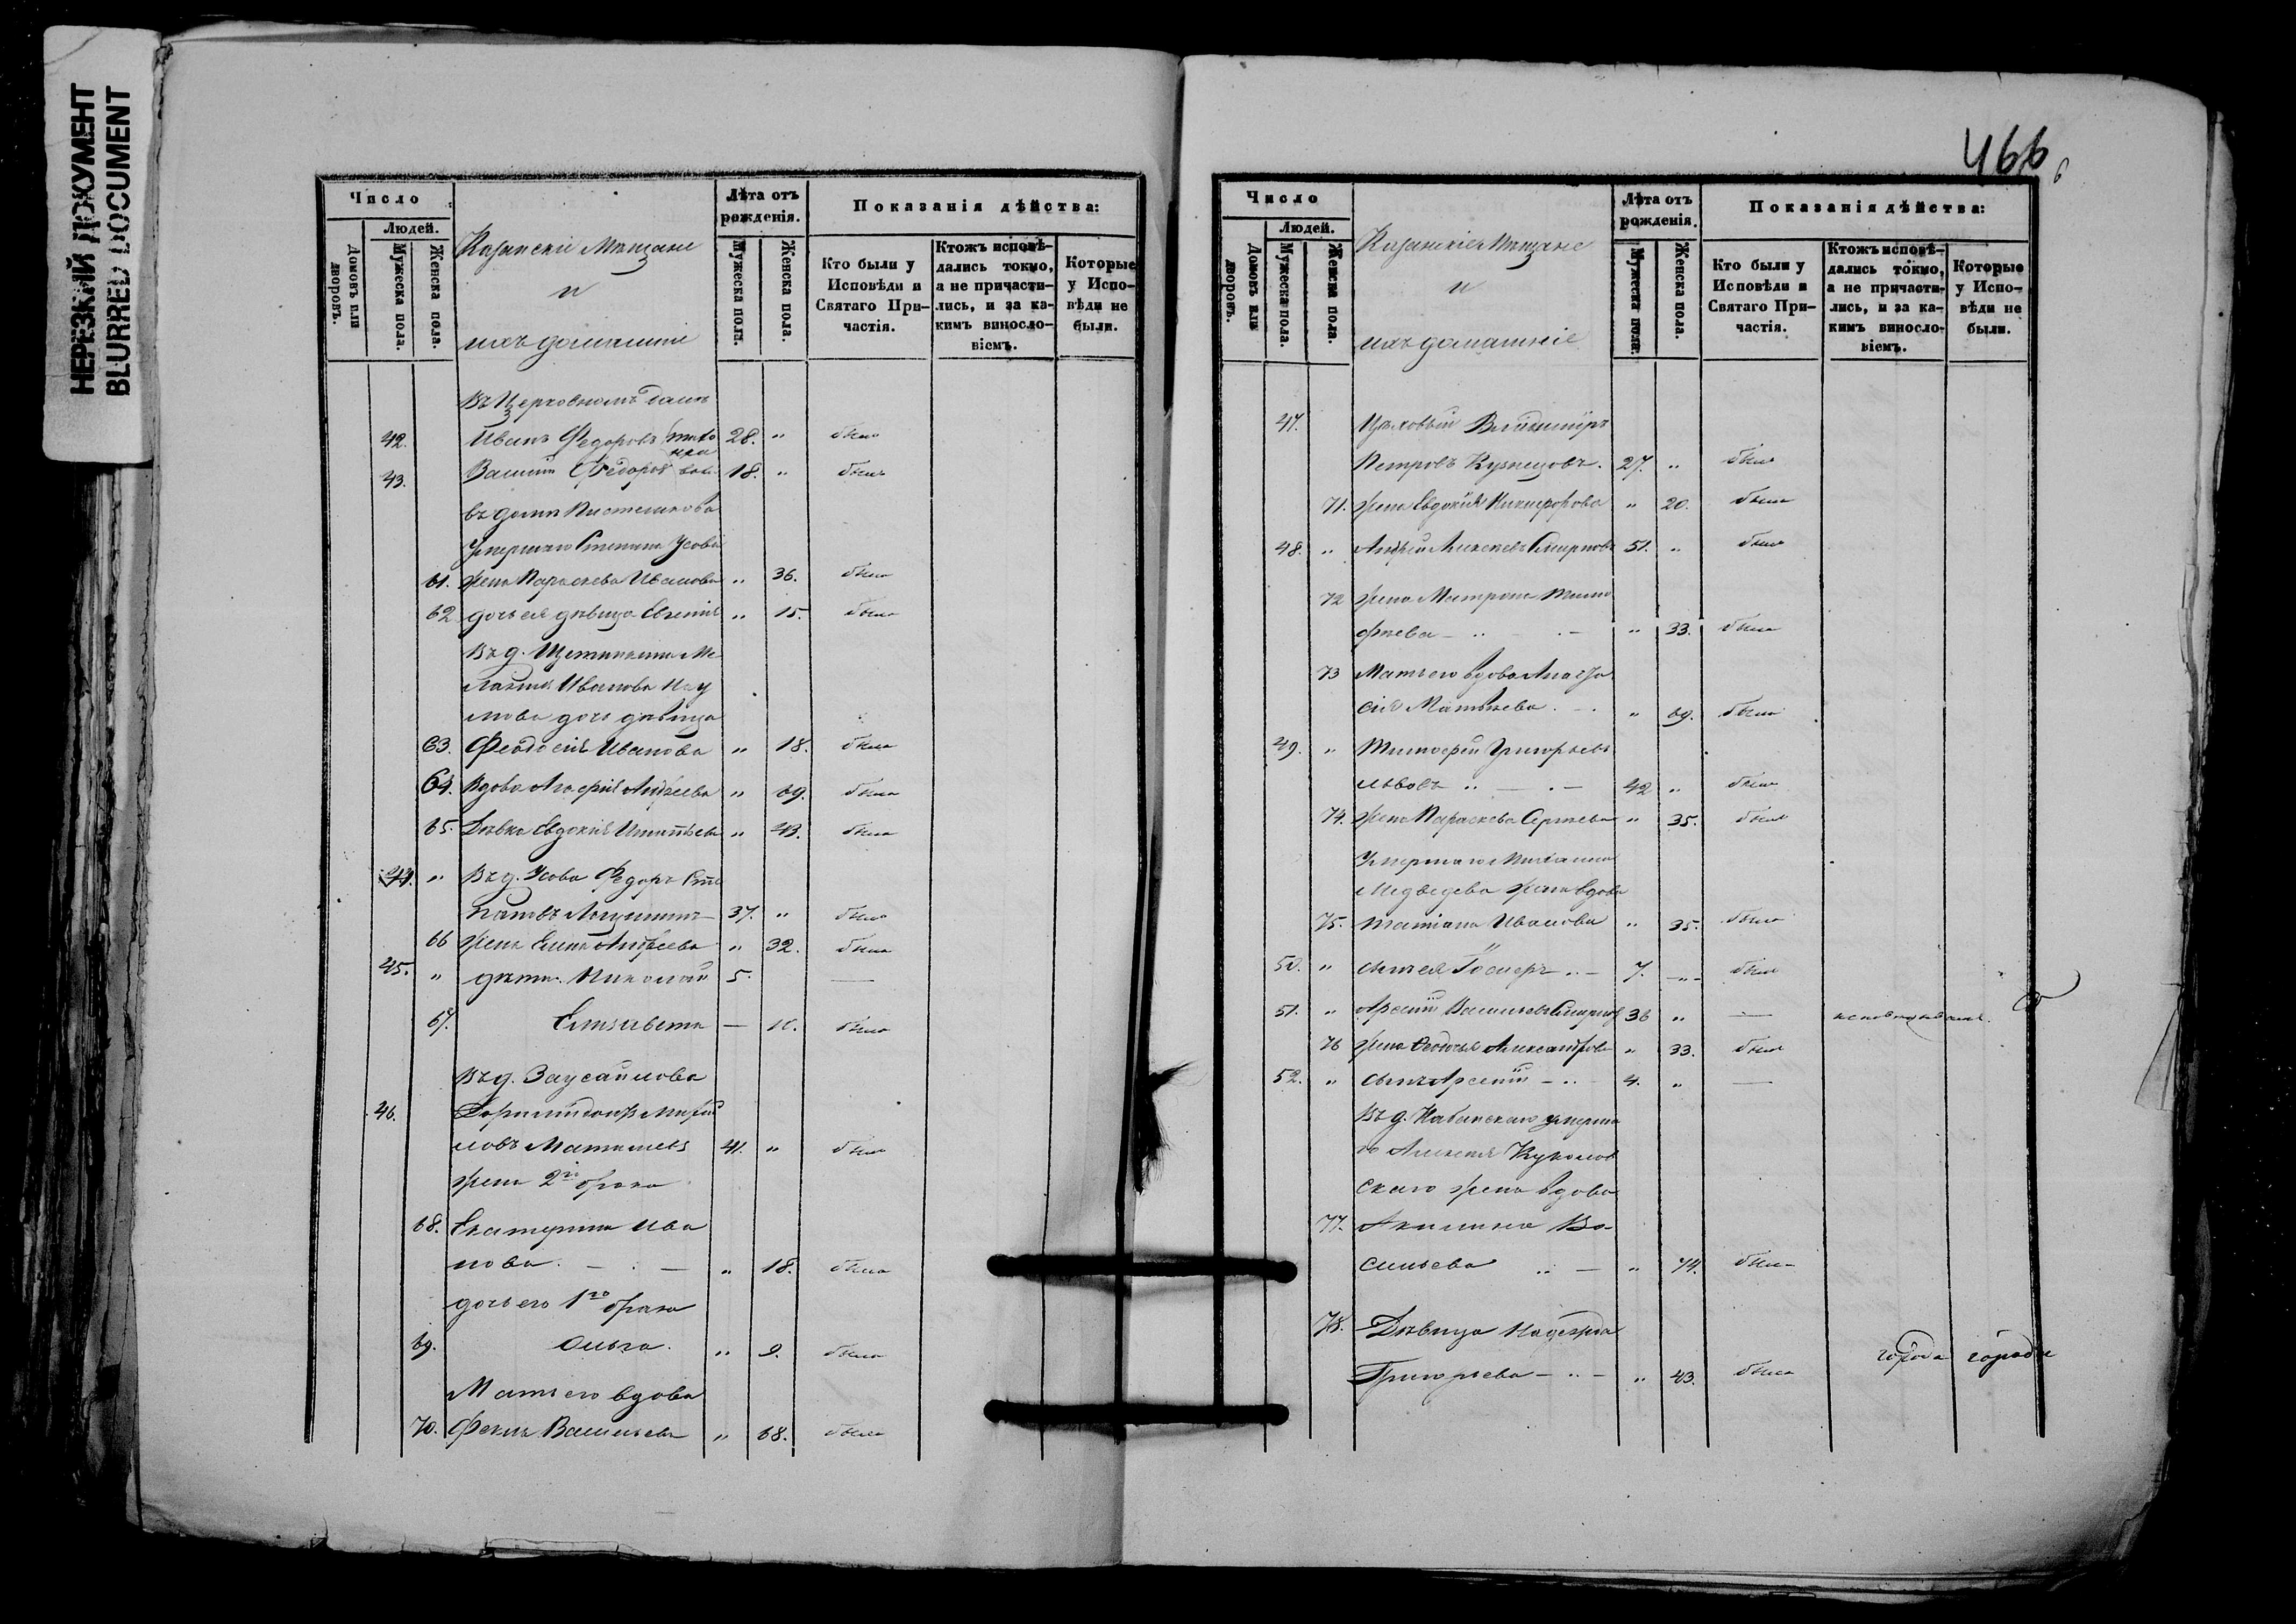 НЕРЕЗКИЙ ДОКУМЕНТ
BLURRED DOCUMENT
Число
Людей.
Домовъ или дворовъ.
Мужеска пола.
Женска пола.
Казанскіе Мѣщане
и
ихъ домашніе
Лѣта отъ рожденія.
Мужеска пола.
Женска пола.
Показанія дѣйства:
Кто были у Исповѣди и Святаго Причастія.
Ктожъ исповѣдались токмо, а не причастились, и за какимъ винословіемъ.
Которые у Исповѣди не были.
Въ Церковномъ домѣ
42. Иванъ Федоровъ 28. " былъ
43. Василій Федоровъ 18. " былъ
въ домѣ
Умершаго Степана Усова
61. жена Параскева Иванова " 36. была
62 дочь ея дѣвица Евгенія " 15. была
Въ д. Щетинкина Ме
ланія Иванова Нау
мова дочь дѣвица
63. Феодосія Иванова " 18. была
64. Вдова Агафія Андреева " 69. была
65. Дѣвка Евдокія Игнатьева " 43. была
44. " Въ д. Усова Федоръ Сте
пановъ 37. " былъ
66 жена Елена Андреева " 32. была
45. " дѣти. Николай 5. —
67. Елизавета — 10. была
Въ д. Заусайлова
46.
41. " былъ
жена 2го брака
68. Екатерина Ива
нова. — . — " 18. была
дочь его 1го брака
69. Ольга. " 9. была
Мать его вдова
70. Фекла Васильева " 68. была
466
6
Число
Людей.
Домовъ или дворовъ.
Мужеска пола.
Женска пола.
Казанскіе Мѣщане
и
ихъ домашніе
Лѣта отъ рожденія.
Мужеска пола.
Женска пола.
Показанія дѣйства:
Кто были у Исповѣди и Святаго Причастія.
Ктожъ исповѣдались токмо, а не причастились, и за какимъ винословіемъ.
Которые у Исповѣди не были.
47. Цѣховый Владиміръ
Петровъ Кузнецовъ. 27. " былъ
71. жена Евдокія Никифорова " 20. была
48. " Андрей Алексѣевъ Смирновъ 51. " былъ
72 жена Матрона Тимо
фѣева — " 33. была
73 Мать его вдова Анаста
сія Матвѣева. " 69. была
49. " Тимофей Григорьевъ
Львовъ 42 " былъ
74. жена Параскева Сергѣева " 35. была
Умершаго Михаила
Медведева жена вдова
75. Татіана Иванова " 35. была
50. " сынъ ея 7. былъ
51. " Арсеній Васильевъ Смирновъ 36 " — исповѣдывался.
76 жена Феодосья Александрова " 33. была
52. " сынъ Арсеній — 4. " —
Въ д. Кабанскаго умерша
го Алексѣя
скаго жена вдова
77. Акилина Ва-
сильева — " 74. была
78. Дѣвица Надежда
Григорьева — " 43. была
города города